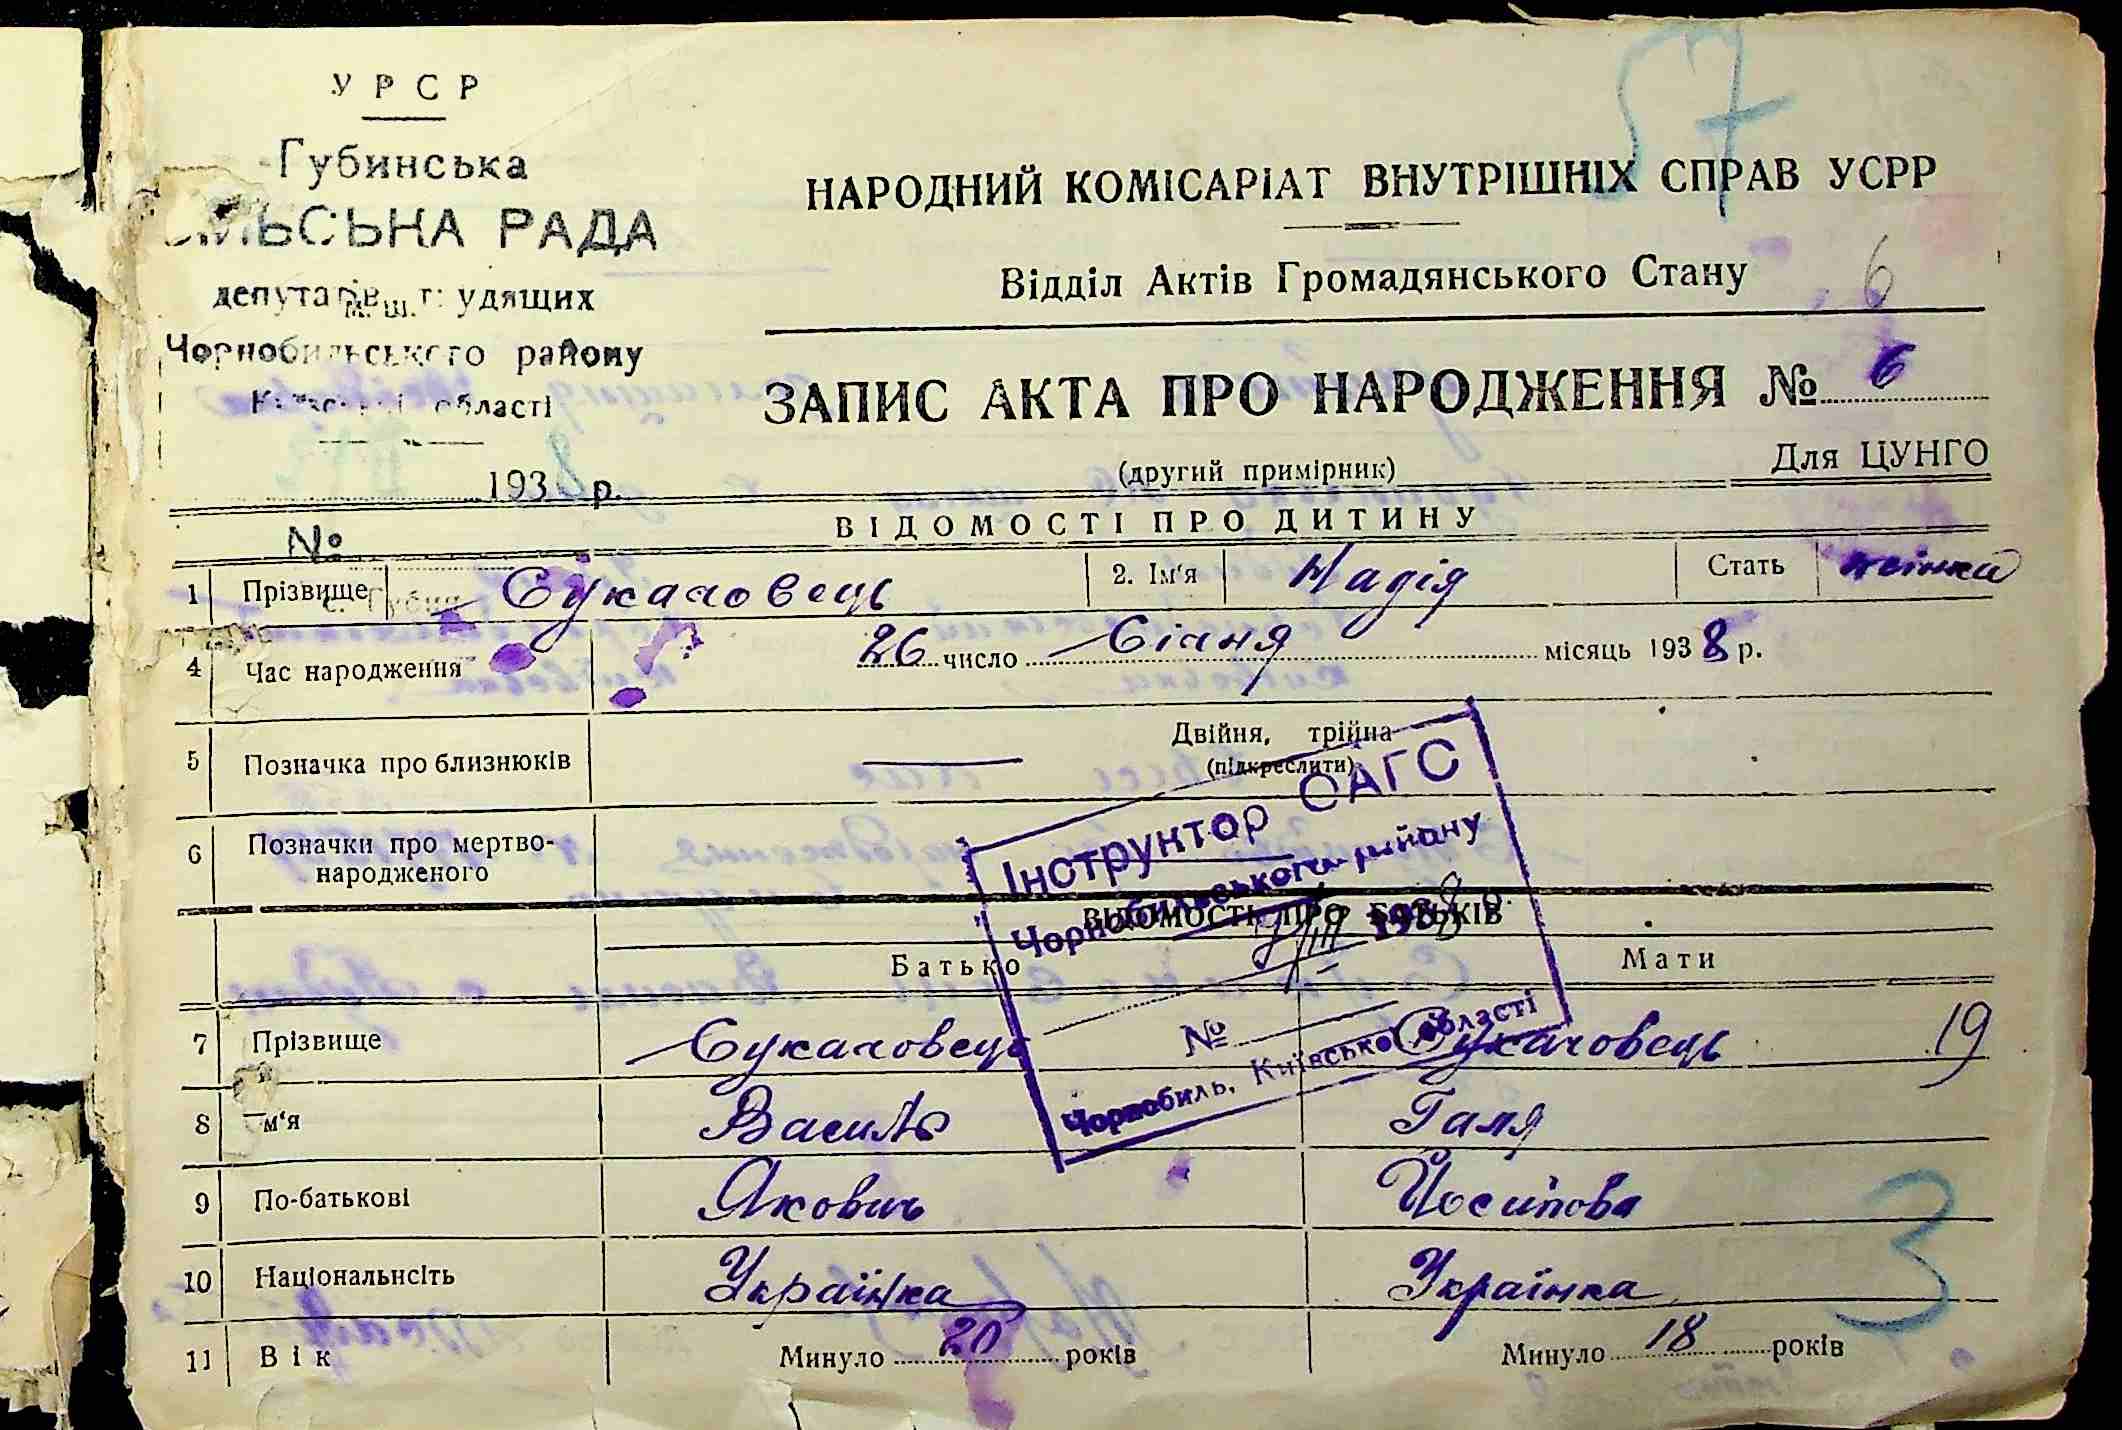 УРСР
Губинська
СІЛЬСЬКА РАДА
депутатів трудящих
Чорнобильського району
Київської області
1938 р.
№
57
НАРОДНИЙ КОМІСАРІАТ ВНУТРІШНІХ СПРАВ УСРР
Відділ Актів Громадянського Стану
6
ЗАПИС АКТА ПРО НАРОДЖЕННЯ № 6
(другий примірник)
Для ЦУНГО
ВІДОМОСТІ ПРО ДИТИНУ
1 Прізвище Сукачовець 2. Ім'я Надія Стать жінки
4 Час народження 26 число Січня місяць 1938 р.
5 Позначка про близнюків — Двійня, трійна
(підкреслити)
6 Позначки про мертво-
народженого
ВІДОМОСТІ ПРО БАТЬКІВ
Батько Мати
7 Прізвище Сукачовець Сукачовець 19
8 м'я Василь Галя
9 По-батькові Якович Йосипова
10 Національнсіть Українка Українка
11 Вік Минуло 20 років Минуло 18 років
3
Інструктор ОАГС
Чорнобильського району
1938 р.
№
Чорнобиль, Київської області